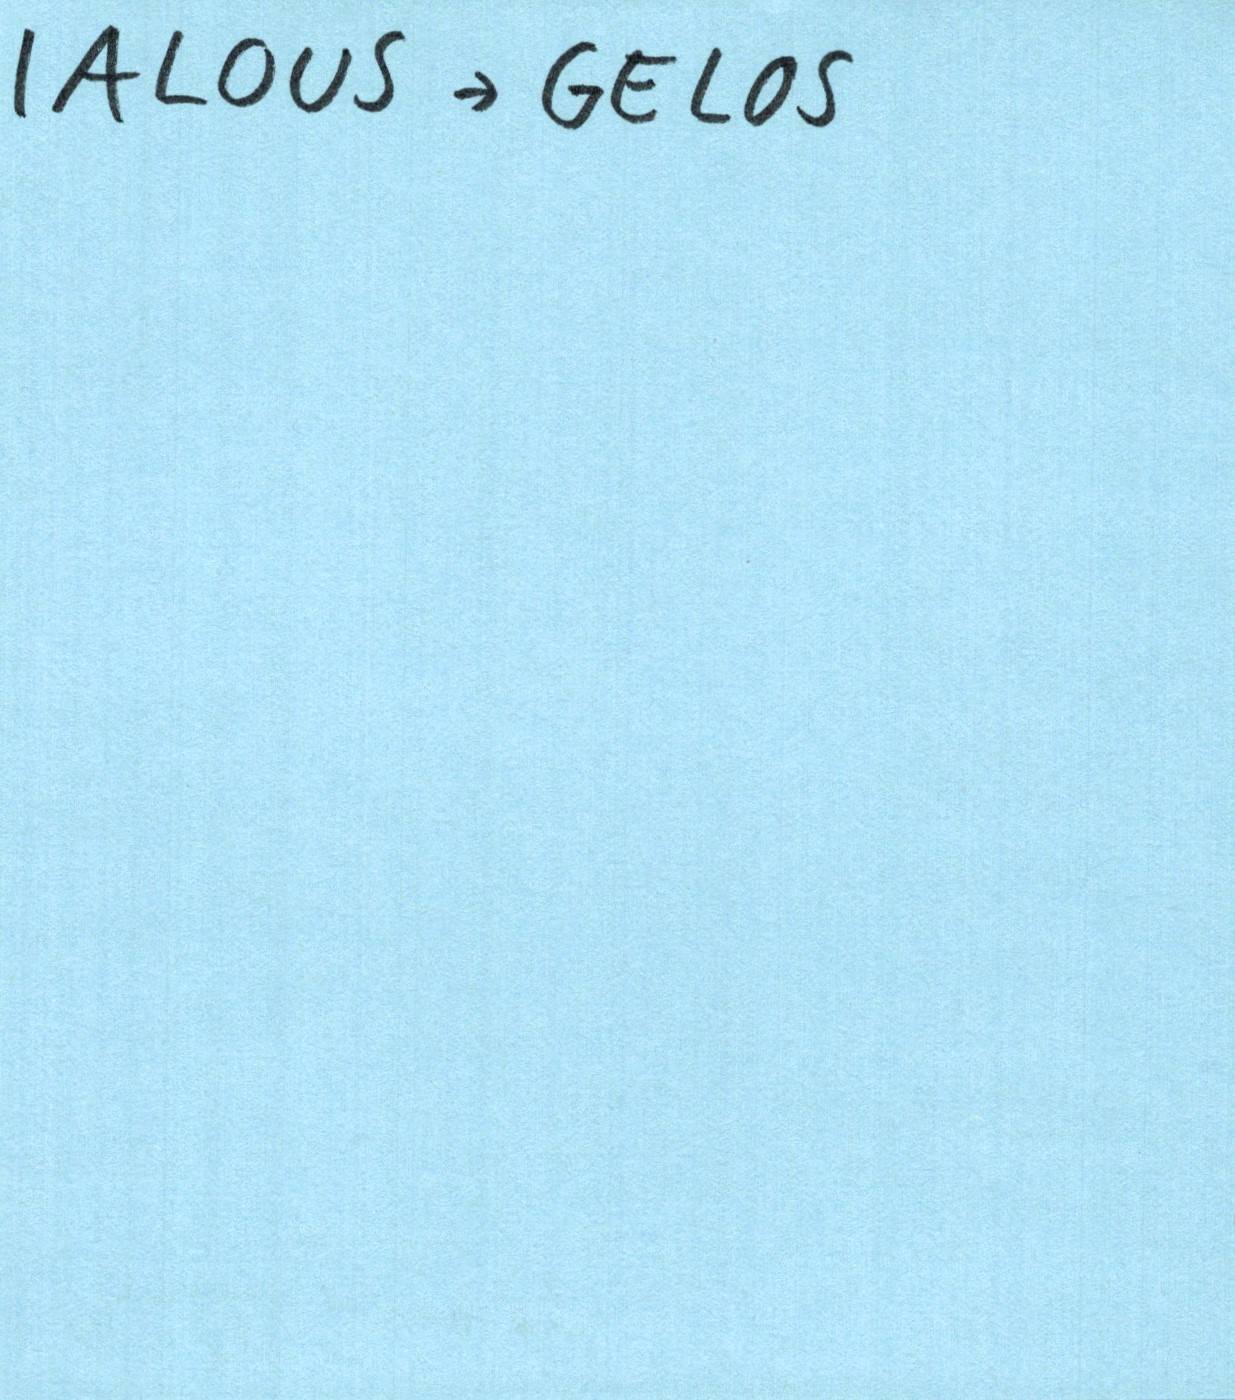 IALOUS → GELOS